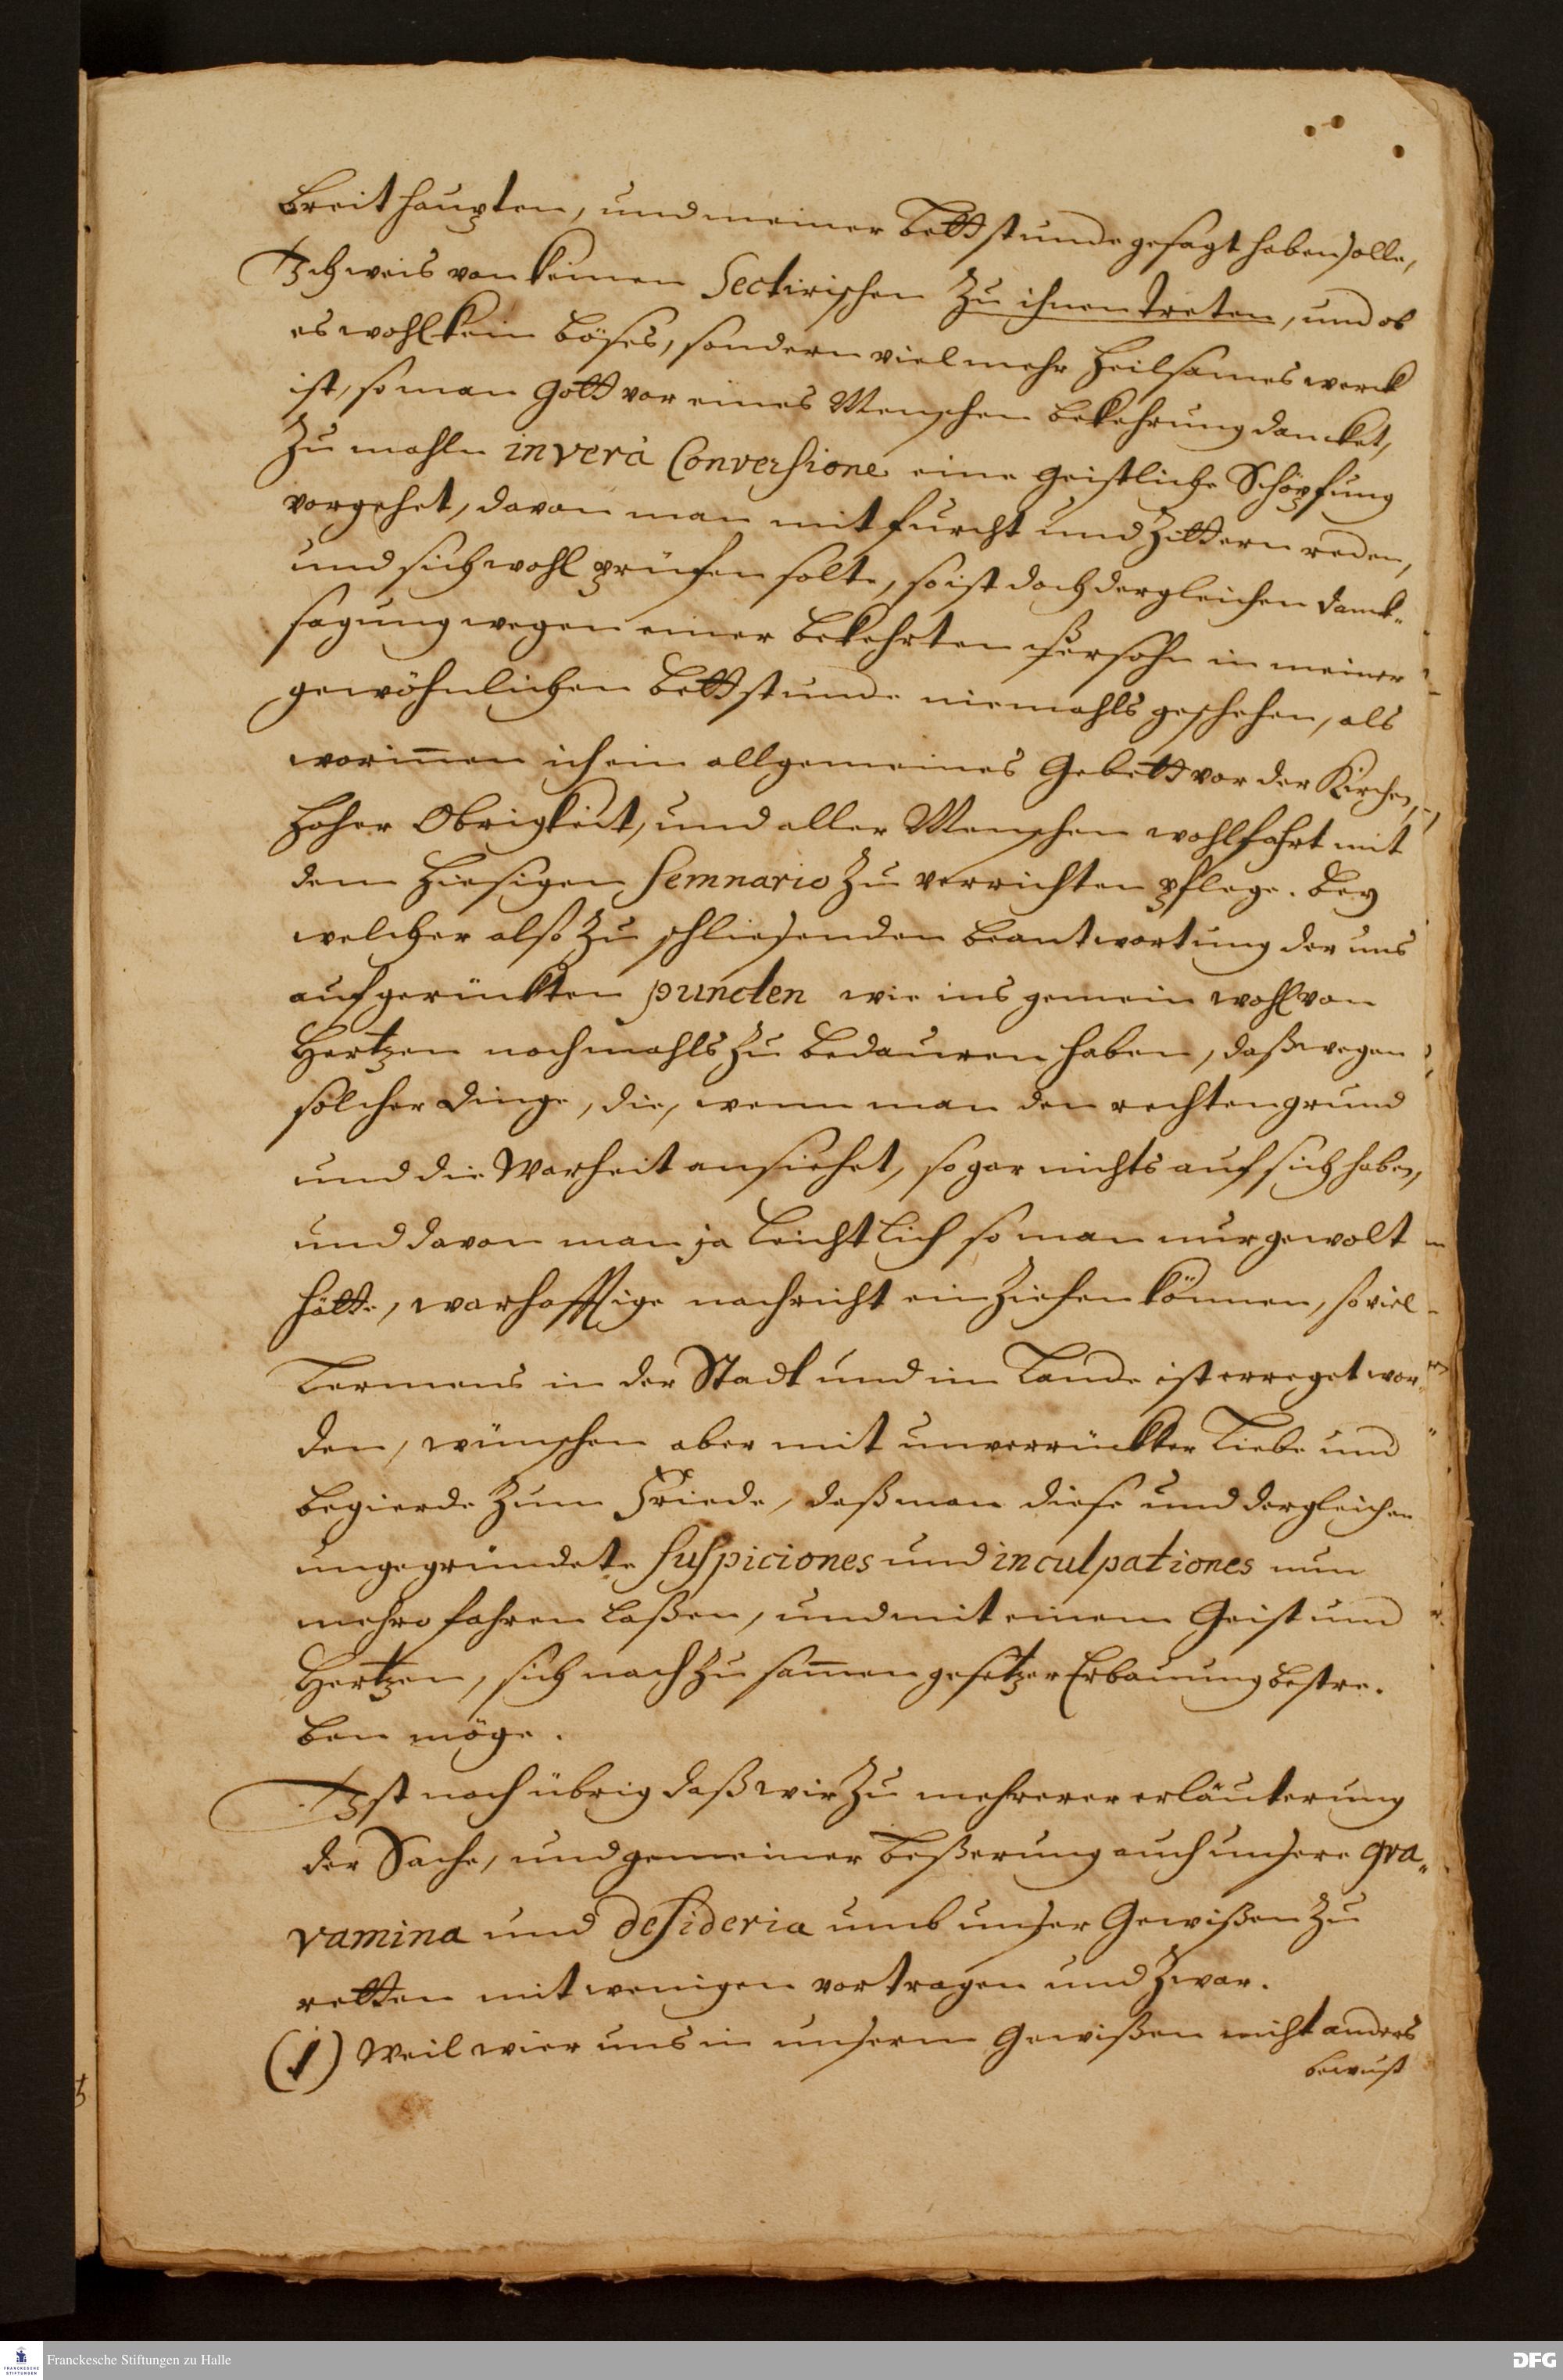 Breithaupten, und meiner Bettstunde gesagt haben solle,
Ich weis von keinen Sectirischen Zu ihnen treten, und ob
es wohl kein böses, sondern vielmehr heilsames werck
ist, so man Gott vor eines Menschen bekehrung dancket,
Zu mahln in verâ Conversione eine geistliche Schöpfung
vorgehet, davon man mit furcht und Zittern reden,
und sich wohl prüfen solte, so ist doch dergleichen danck-
sagung wegen einer bekehrten Persohn in meiner
gewöhnlichen Bettstunde niemahls geschehen, als
worinnen ich ein allgemeines Gebett vor der Kirchen,
hoher Obrigkeit, und aller Menschen wohlfahrt mit
dem hiesigen Semnario Zu verrichten pflege. Bey
welcher also Zu schliesenden beantwortung der uns
aufgerückten puncten wir ins gemein wohl von
Hertzen nochmahls Zu bedauren haben, daß wegen
solcher dinge, die, wenn man den rechten grund
und die Warheit ansiehet, so gar nichts auf sich haben,
und davon man ja leichtlich so man nur gewolt
hätte, warhafftige nachricht einziehen können, so viel
Lermens in der Stadt und im Lande ist erreget wor-
den, wünschen aber mit unverrückter Liebe und
begierde Zum Friede, daß man diese und dergleichen
ungegründete Suspiciones und inculpationes nun
mehro fahren laßen, und mit einem Geist und
Hertzen, sich nach Zusammengesetzer Erbauung bestre-
ben möge.
Ist noch übrig daß wir Zu mehrerer erläuterung
der Sache, und gemeiner beßerung auch unsere gra-
vamina und desideria umb unser Gewißen Zu
retten mit wenigen vortragen und Zwar.
(1) Weil wier uns in unserm Gewißen nicht anders
bewust
Franckesche Stiftungen zu Halle
DFG